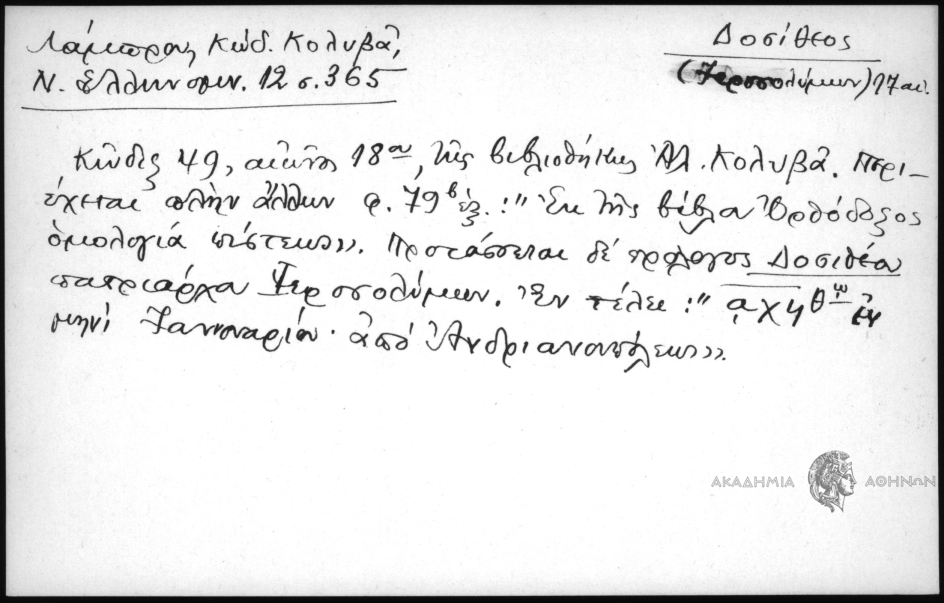 Λάμπρου, Κώδ. Κολυβᾶ,
Ν. Ἑλληνομν. 12 σ. 365
Δοσίθεος
(Ἱεροσολύμων) 17 αἰ.
Κῶδιξ 49, αἰῶνος 18ου, τῆς βιβλιοθήκης Ἀλ. Κολυβᾶ. Περι-
έχεται πλὴν ἄλλων φ. 79β ἑξ. :" Ἐκ τῆς βίβλου Ὀρθόδοξος
ὁμολογία πίστεως». Προτάσσεται δέ πρόλογος Δοσιθέου
πατριάρχου Ἱεροσολύμων. Ἐν τέλει :" ͵αχϟθῳ ἐν
μηνί Ἰαννουαρίου · ἀπό Ἀνδριανουπόλεως».
ΑΚΑΔΗΜΙΑ ΑΘΗΝΩΝ